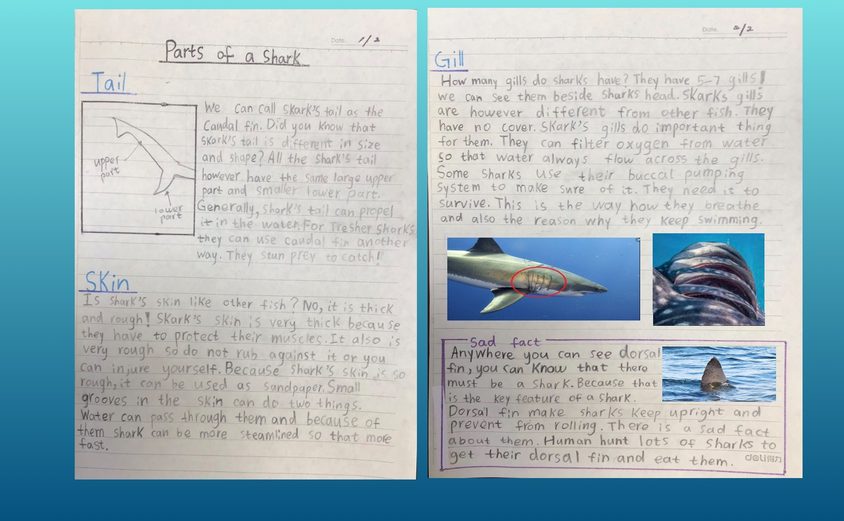 Date. 1/2
Parts of a Shark
Tail
We can call skark's tail as the
Caudal fin. Did you know that
skark's tail is different in size
and shape? All the shark's tail
however have the same large upper
part and smaller lower part.
Generally, shark's tail can propel
it in the water. For Tresher sharks
they can use caudal fin another
way. They stun prey to catch!
upper
part
lower
part
Skin
Is shark's skin like other fish? No, it is thick
and rough! Skark's skin is very thick because
they have to protect their muscles. It also is
very rough so do not rub against it or you
can injure yourself. Because shark's skin is so
rough, it can be used as sandpaper. Small
grooves in the skin can do two things.
Water can pass through them and because of
them shark can be more steamlined so that more
fast.
Date. 2/2
Gill
How many gills do sharks have? They have 5-7 gills!
we can see them beside sharks head. Skarks gills
are however different from other fish. They
have no cover. Skark's gills do important thing
for them. They can filter oxygen from water
so that water always flow across the gills.
Some sharks use their buccal pumping
system to make sure of it. They need it to
survive. This is the way how they breathe
and also the reason why they keep swimming.
Sad fact
Anywhere you can see dorsal
fin, you can know that there
must be a shark. Because that
is the key feature of a shark.
Dorsal fin make sharks keep upright and
prevent from rolling. There is a sad fact
about them. Human hunt lots of sharks to
get their dorsal fin and eat them.
deli得力